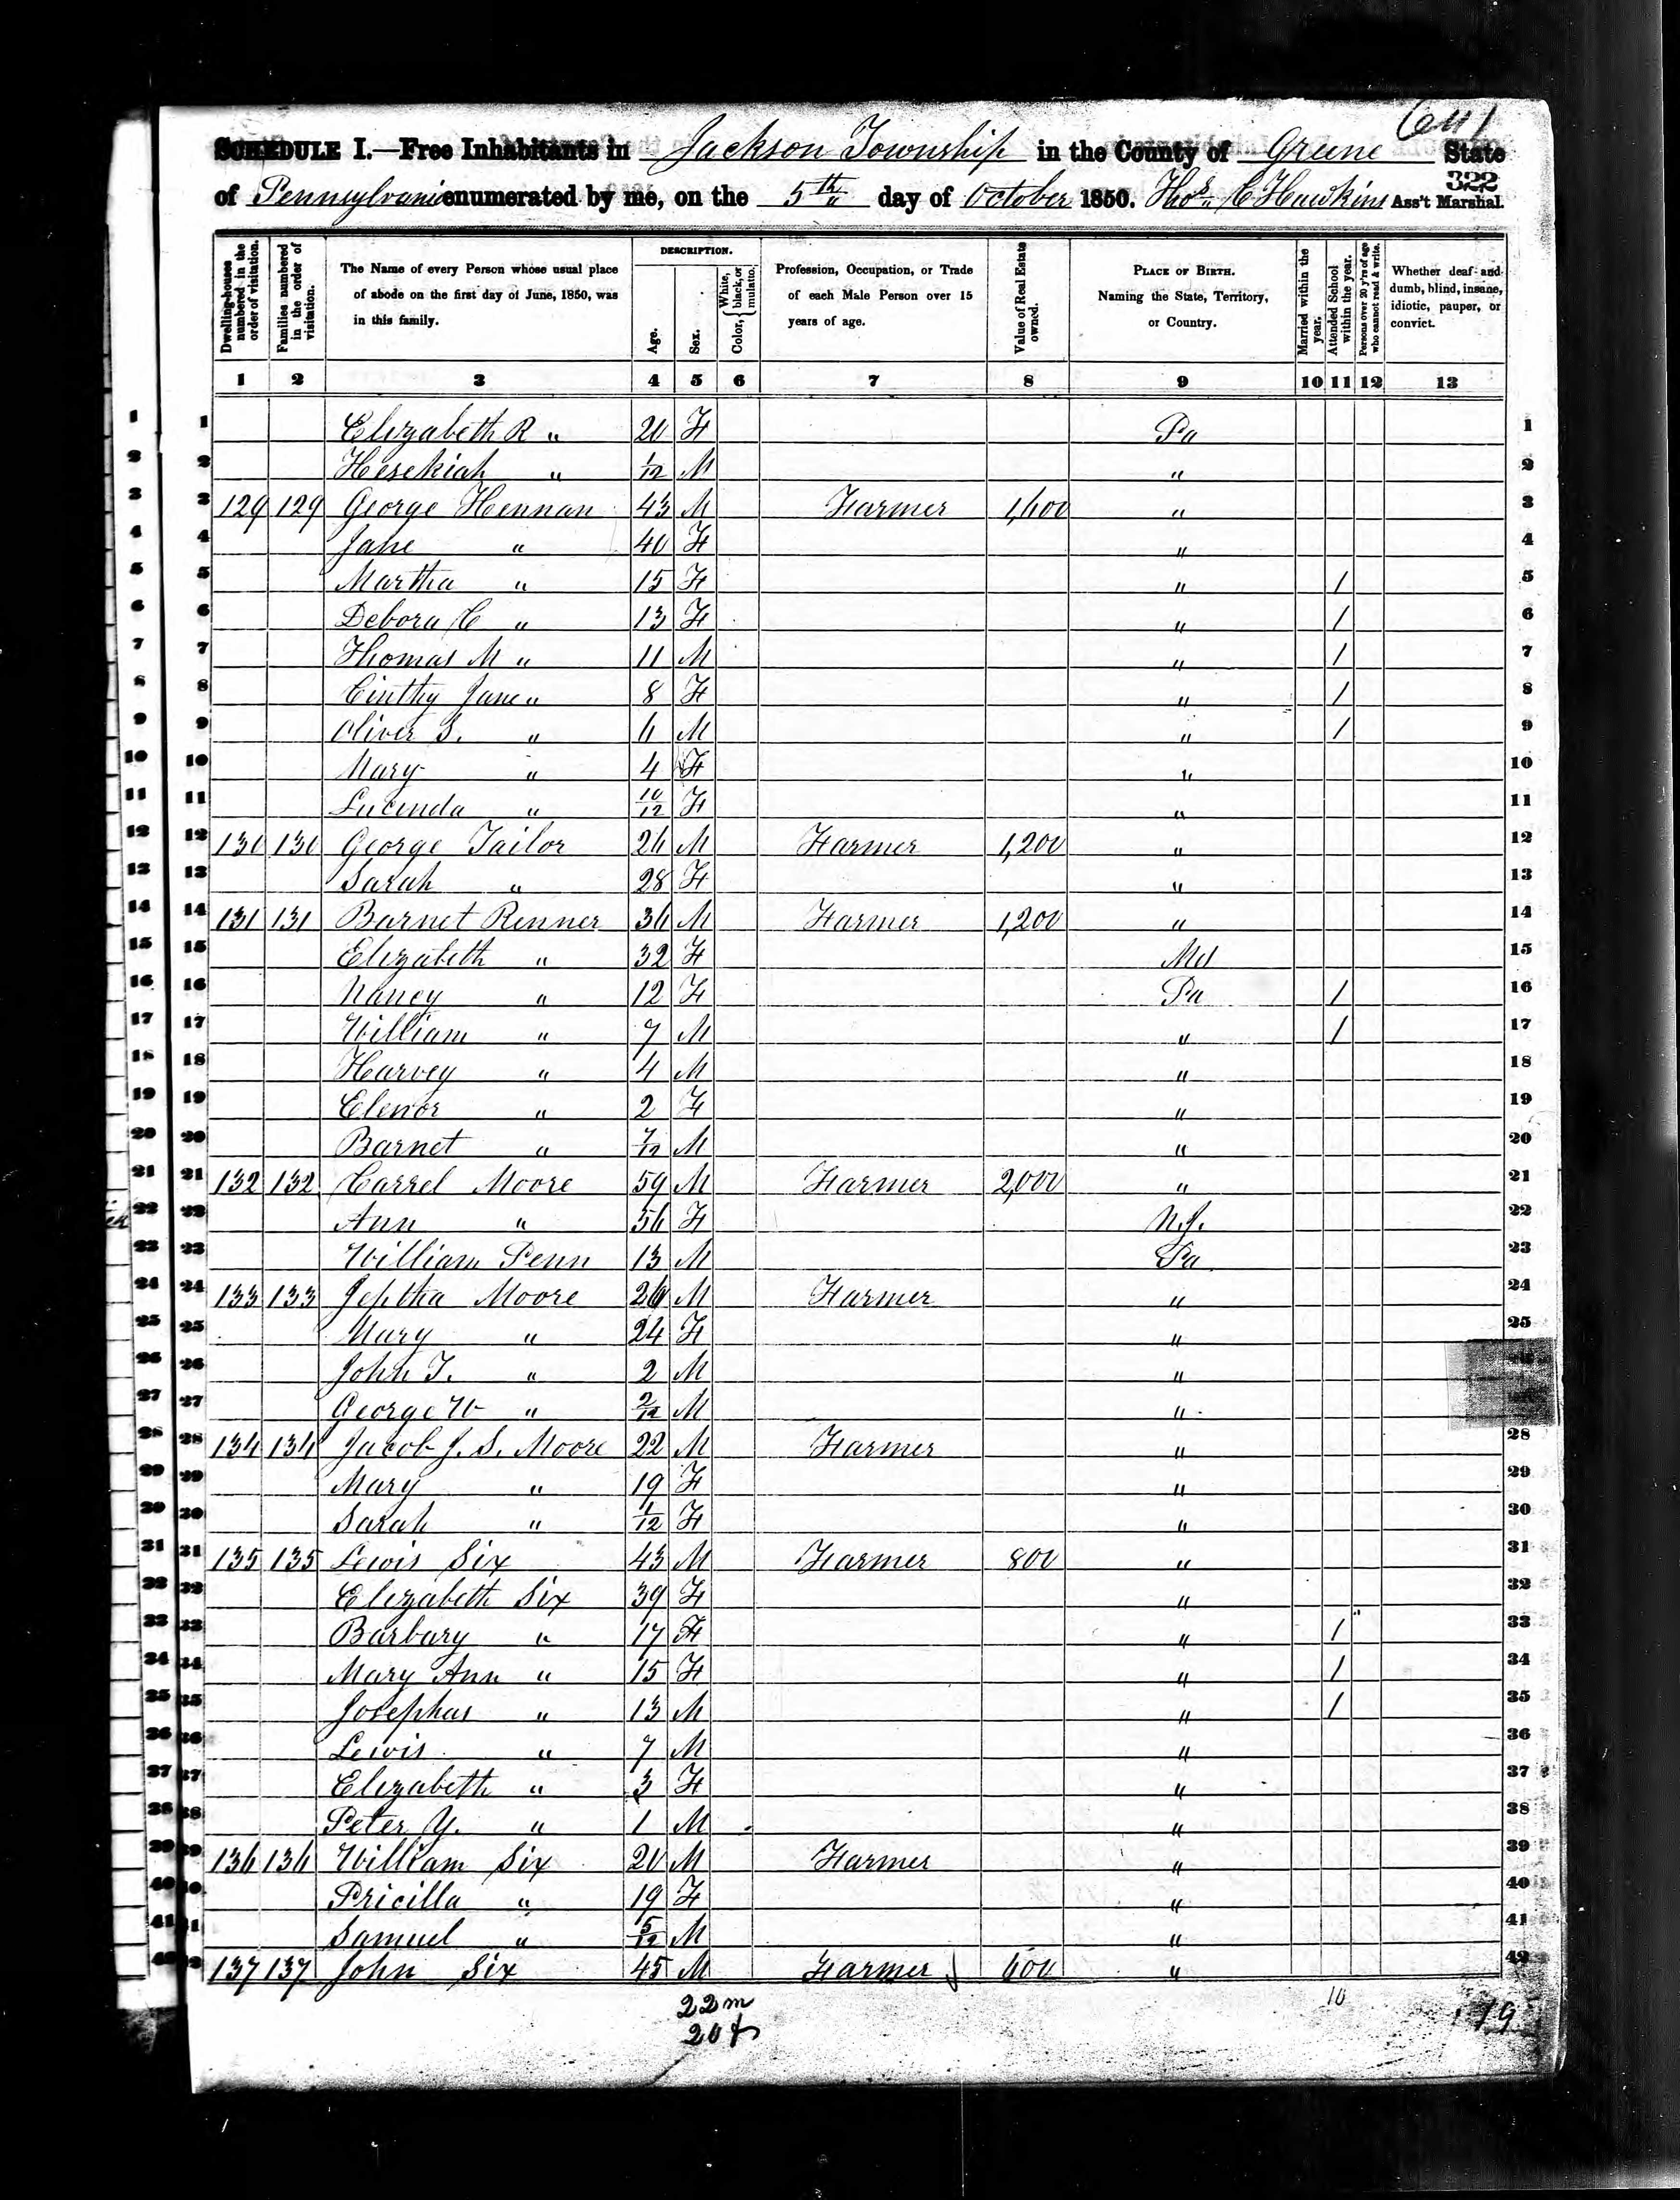 641
SCHEDULE I.—Free Inhabitants in Jackson Township in the County of Greene State
322
of Pennsylvania enumerated by me, on the 5th day of October 1850. Thos C Hawkins Ass't Marshal.
Dwelling-houses numbered in the order of visitation. Families numbered in the order of visitation. The Name of every Person whose usual place of abode on the first day of June, 1850, was in this family. DESCRIPTION. Age. Sex. Color, { White, black, or mulatto. Profession, Occupation, or Trade of each Male Person over 15 years of age. Value of Real Estate owned. PLACE OF BIRTH. Naming the State, Territory, or Country. Married within the year. Attended School within the year. Persons over 20 y'rs of age who cannot read & write. Whether deaf and dumb, blind, insane, idiotic, pauper, or convict.
1 2 3 4 5 6 7 8 9 10 11 12 13
1 1 Elizabeth R " 20 F Pa 1
2 2 Hesekiah " 1/12 M " 2
3 3 129 129 George Hennan 43 M Farmer 1,600 " 3
4 4 Jane " 40 F " 4
5 5 Martha " 15 F " / 5
6 6 Debora C " 13 F " / 6
7 7 Thomas M " 11 M " / 7
8 8 Cinthy Jane " 8 F " / 8
9 9 Oliver S. " 6 M " / 9
10 10 Mary " 4 F " 10
11 11 Lucinda " 10/12 F " 11
12 12 130 130 George Tailor 26 M Farmer 1,200 " 12
13 13 Sarah " 28 F " 13
14 14 131 131 Barnet Renner 36 M Farmer 1,200 " 14
15 15 Elizabeth " 32 F Md 15
16 16 Nancy " 12 F Pa / 16
17 17 William " 7 M " / 17
18 18 Harvey " 4 M " 18
19 19 Elenor " 2 F " 19
20 20 Barnet " 7/12 M " 20
21 21 132 132 Carrel Moore 59 M Farmer 2,000 " 21
22 22 Ann " 56 F N.J. 22
23 23 William Penn 13 M Pa 23
24 24 133 133 Jeptha Moore 26 M Farmer " 24
25 25 Mary " 24 F " 25
26 26 John T. " 2 M "
27 27 George W " 2/12 M "
28 28 134 134 Jacob J. S. Moore 22 M Farmer " 28
29 29 Mary " 19 F " 29
30 30 Sarah " 1/12 F " 30
31 31 135 135 Lewis Six 43 M Farmer 800 " 31
32 32 Elizabeth Six 39 F " 32
33 33 Barbary " 17 F " / 33
34 34 Mary Ann " 15 F " / 34
35 35 Josephas " 13 M " / 35
36 36 Lewis " 7 M " 36
37 37 Elizabeth " 3 F " 37
38 38 Peter Y. " 1 M " 38
39 39 136 136 William Six 20 M Farmer " 39
40 40 Pricilla " 19 F " 40
41 41 Samuel " 5/12 M " 41
42 42 137 137 John Six 45 M Farmer 600 " 42
22 m 10
20 f 19